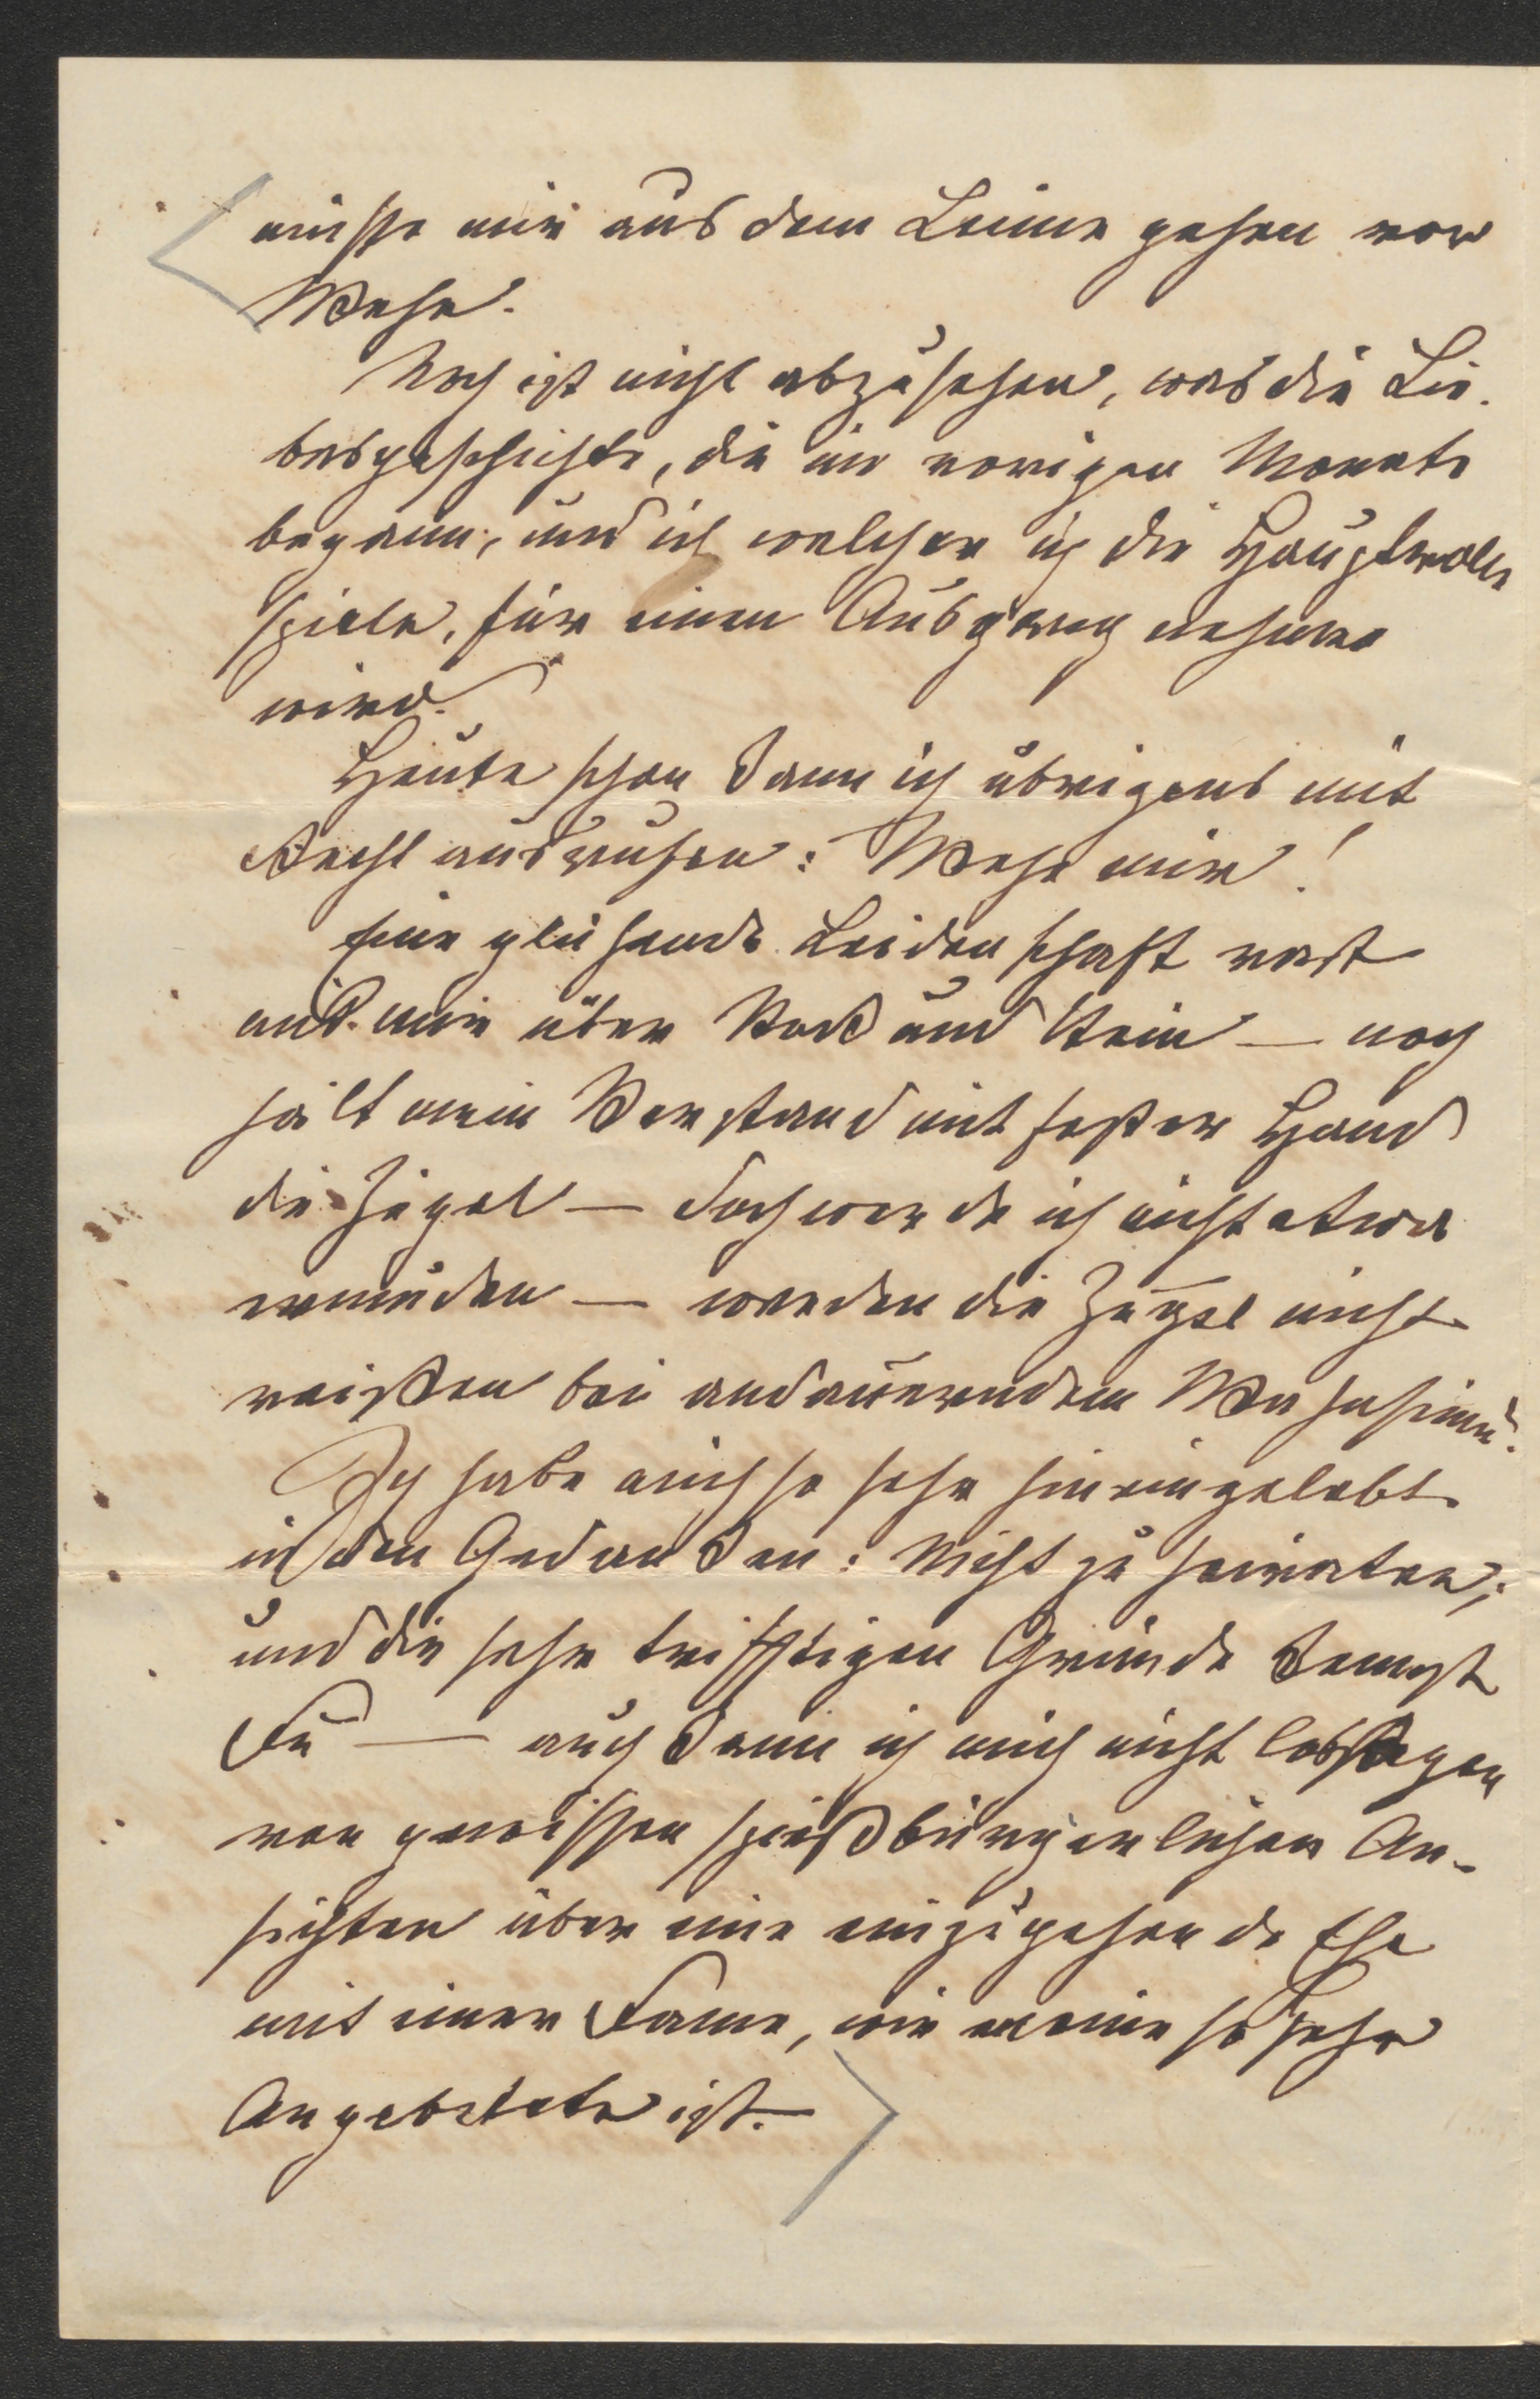 müsse mir aus dem Leime gehen vor
Wehe.
Noch ist nicht abzusehen, was die Lie-
besgeschichte, die im vorigen Monate
begann, und in welcher ich die Hauptrolle
spiele, für einen Ausgang nehmen
wird.
Heute schon kann ich übrigens mit
Recht ausrufen: Wehe mir!
Eine glühende Leidenschaft rast
mit mir über Stock und Stein — noch
hält mein Verstand mit fester Hand
die Zügel — doch werde ich nicht etwa
ermüden — werden die Zügel nicht
reißen bei andauerndem
Ich habe mich so sehr hineingelebt
in den Gedanken: Nicht zu heiraten;
und die sehr trifftigen Gründe kennst
Du — auch kann ich mich nicht lossagen
von gewissen spießbürgerlichen An-
sichten über eine einzugehende Ehe
mit einer Dame, wie meine so sehr
Angebetete ist.